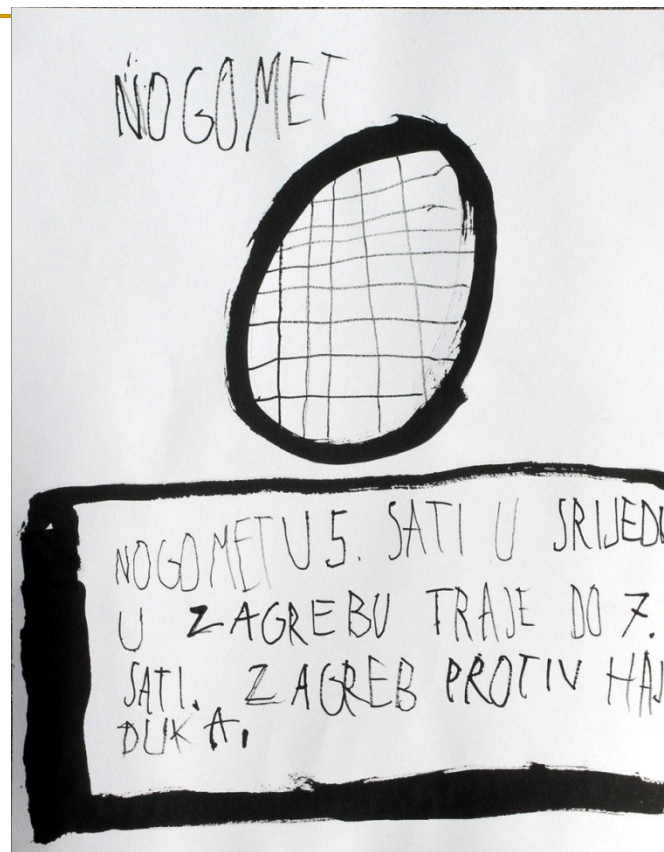 NOGOMET
NOGOMET U 5. SATI U SRIJEDU
U ZAGREBU TRAJE DO 7.
SATI. ZAGREB PROTIV HAJ
DUKA.